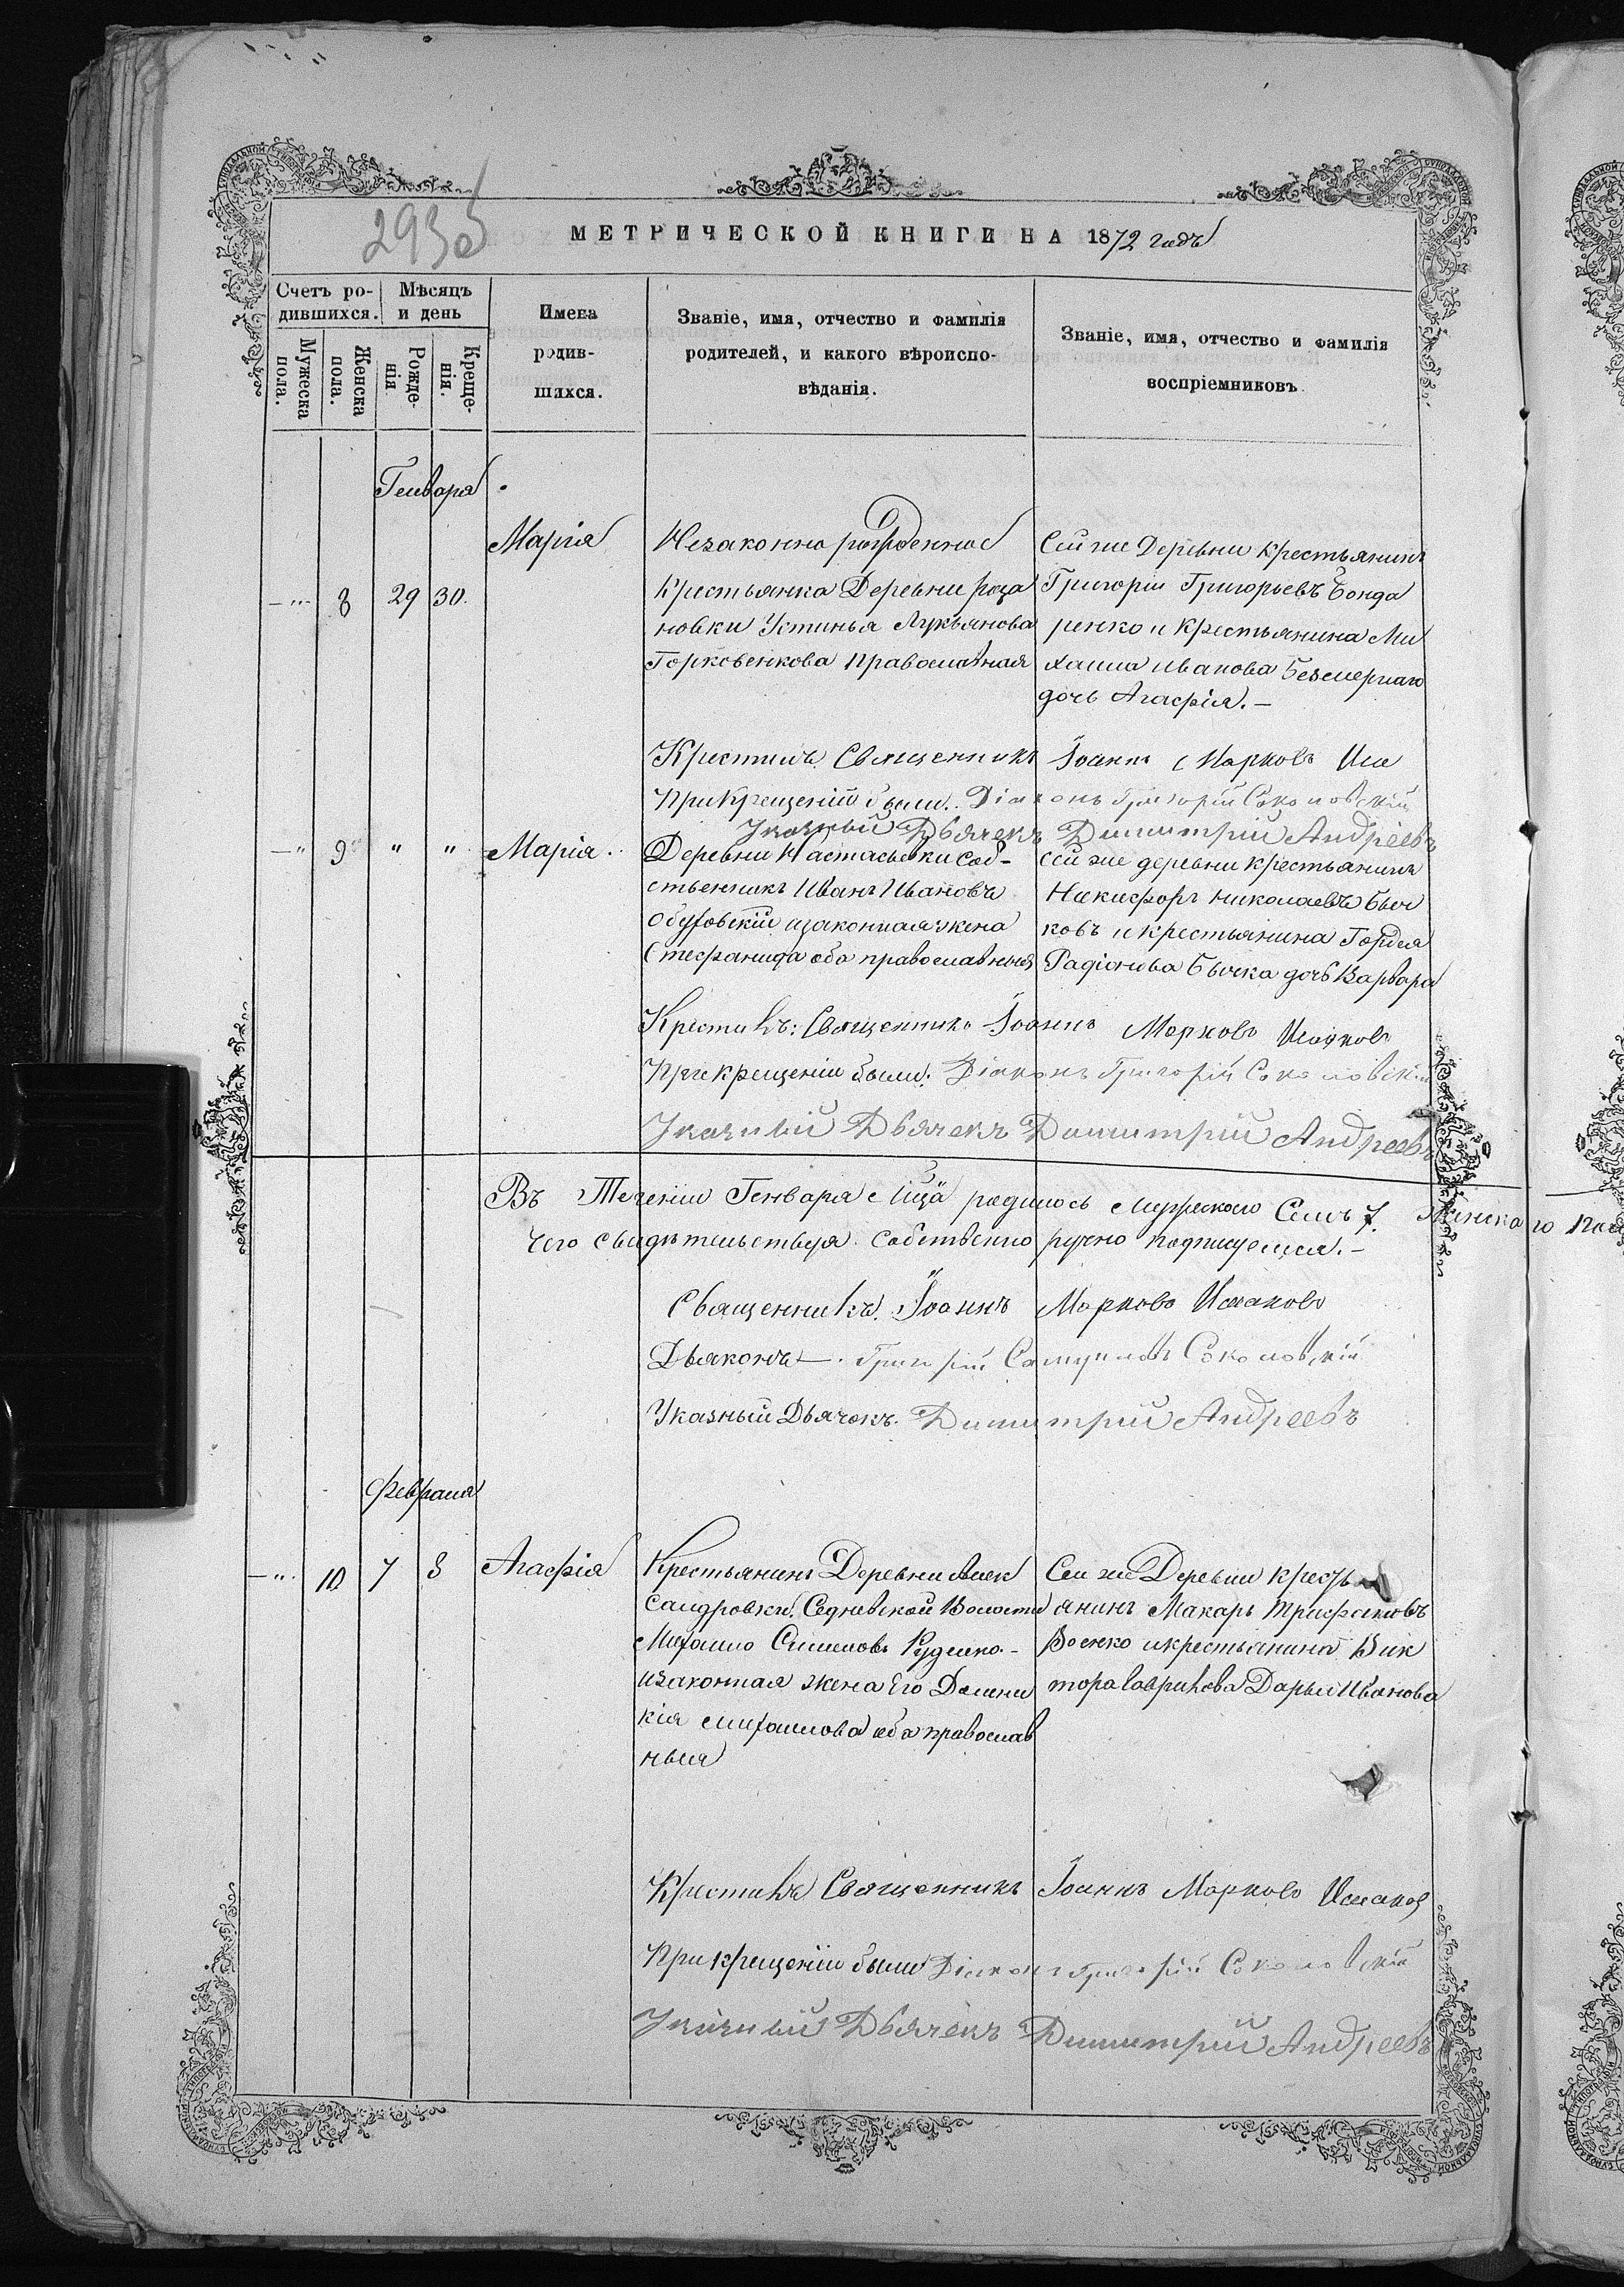 293об
МЕТРИЧЕСКОЙ КНИГИ НА 1872 годъ
Счетъ ро-
дившихся.
Мужеска
пола.
Женска
пола.
Мѣсяцъ
и день
Рожде-
нія
Креще-
нія.
Имена
родив-
шихся.
Званіе, имя, отчество и фамилія
родителей, и какого вѣроиспо-
вѣданія.
Званіе, имя, отчество и фамилія
воспріемниковъ
Генваря
8 29 30. Марія
Незаконно рожденнос
Крестьянка Деревни
новки Устинья Лукьянова
Горковенкова православная
Сей же Деревни крестьянинъ
Григорій Григорьевъ Бонда
ренко и крестьянина Ми
хаила Иванова Безмернаго
дочь Агафія. —
Крестилъ Священникъ Іоаннъ Марковъ
При крещеніи были. Діаконъ Григорій Соколовскій
Указный Дьячекъ Димитрій Андреевъ
9 " " Марія
Деревни Настасьевки соб-
ственникъ Иванъ Ивановъ
изаконная жена
Стефанида оба православныя
Сей же деревни крестьянинъ
Никифоръ Николаевъ Быч
ковъ и крестьянина Гордея
Радіонова Бычка дочь Варвара
Крестилъ: Священникъ Іоаннъ Марковъ Исаковъ
При крещеніи были: Діаконъ Григорій Соколовскій
Указный Дьячекъ Димитрій Андреевъ
Въ Теченіи Генваря Мца родилось Мужескаго Семь 7. Женскаго
Чего свидѣтельствуя собственно ручно подписуемся. —
Священникъ. Іоаннъ Марковъ Исаковъ
Дьяконъ — Григорій Самуиловъ Соколовскій
Указный Дьячокъ. Димитрій Андреевъ
Февраля
10 7 8 Агафія
Крестьянинъ Деревни Алек
сандровки. Седневской Волости
Михаило Симеоновъ Руденко. —
изаконная жена Его Домни
кія Михаилова оба православ
ныя
Сей же Деревни кресть
янинъ Макаръ Трифоновъ
икрестьянина Вик
тора Гаврикова Дарья Иванова
Крестилъ Священникъ Іоаннъ Марковъ Исаковъ
При крещеніи были Діаконъ Григорій Соколовскій
Указный Дьячекъ Димитрій Андреевъ